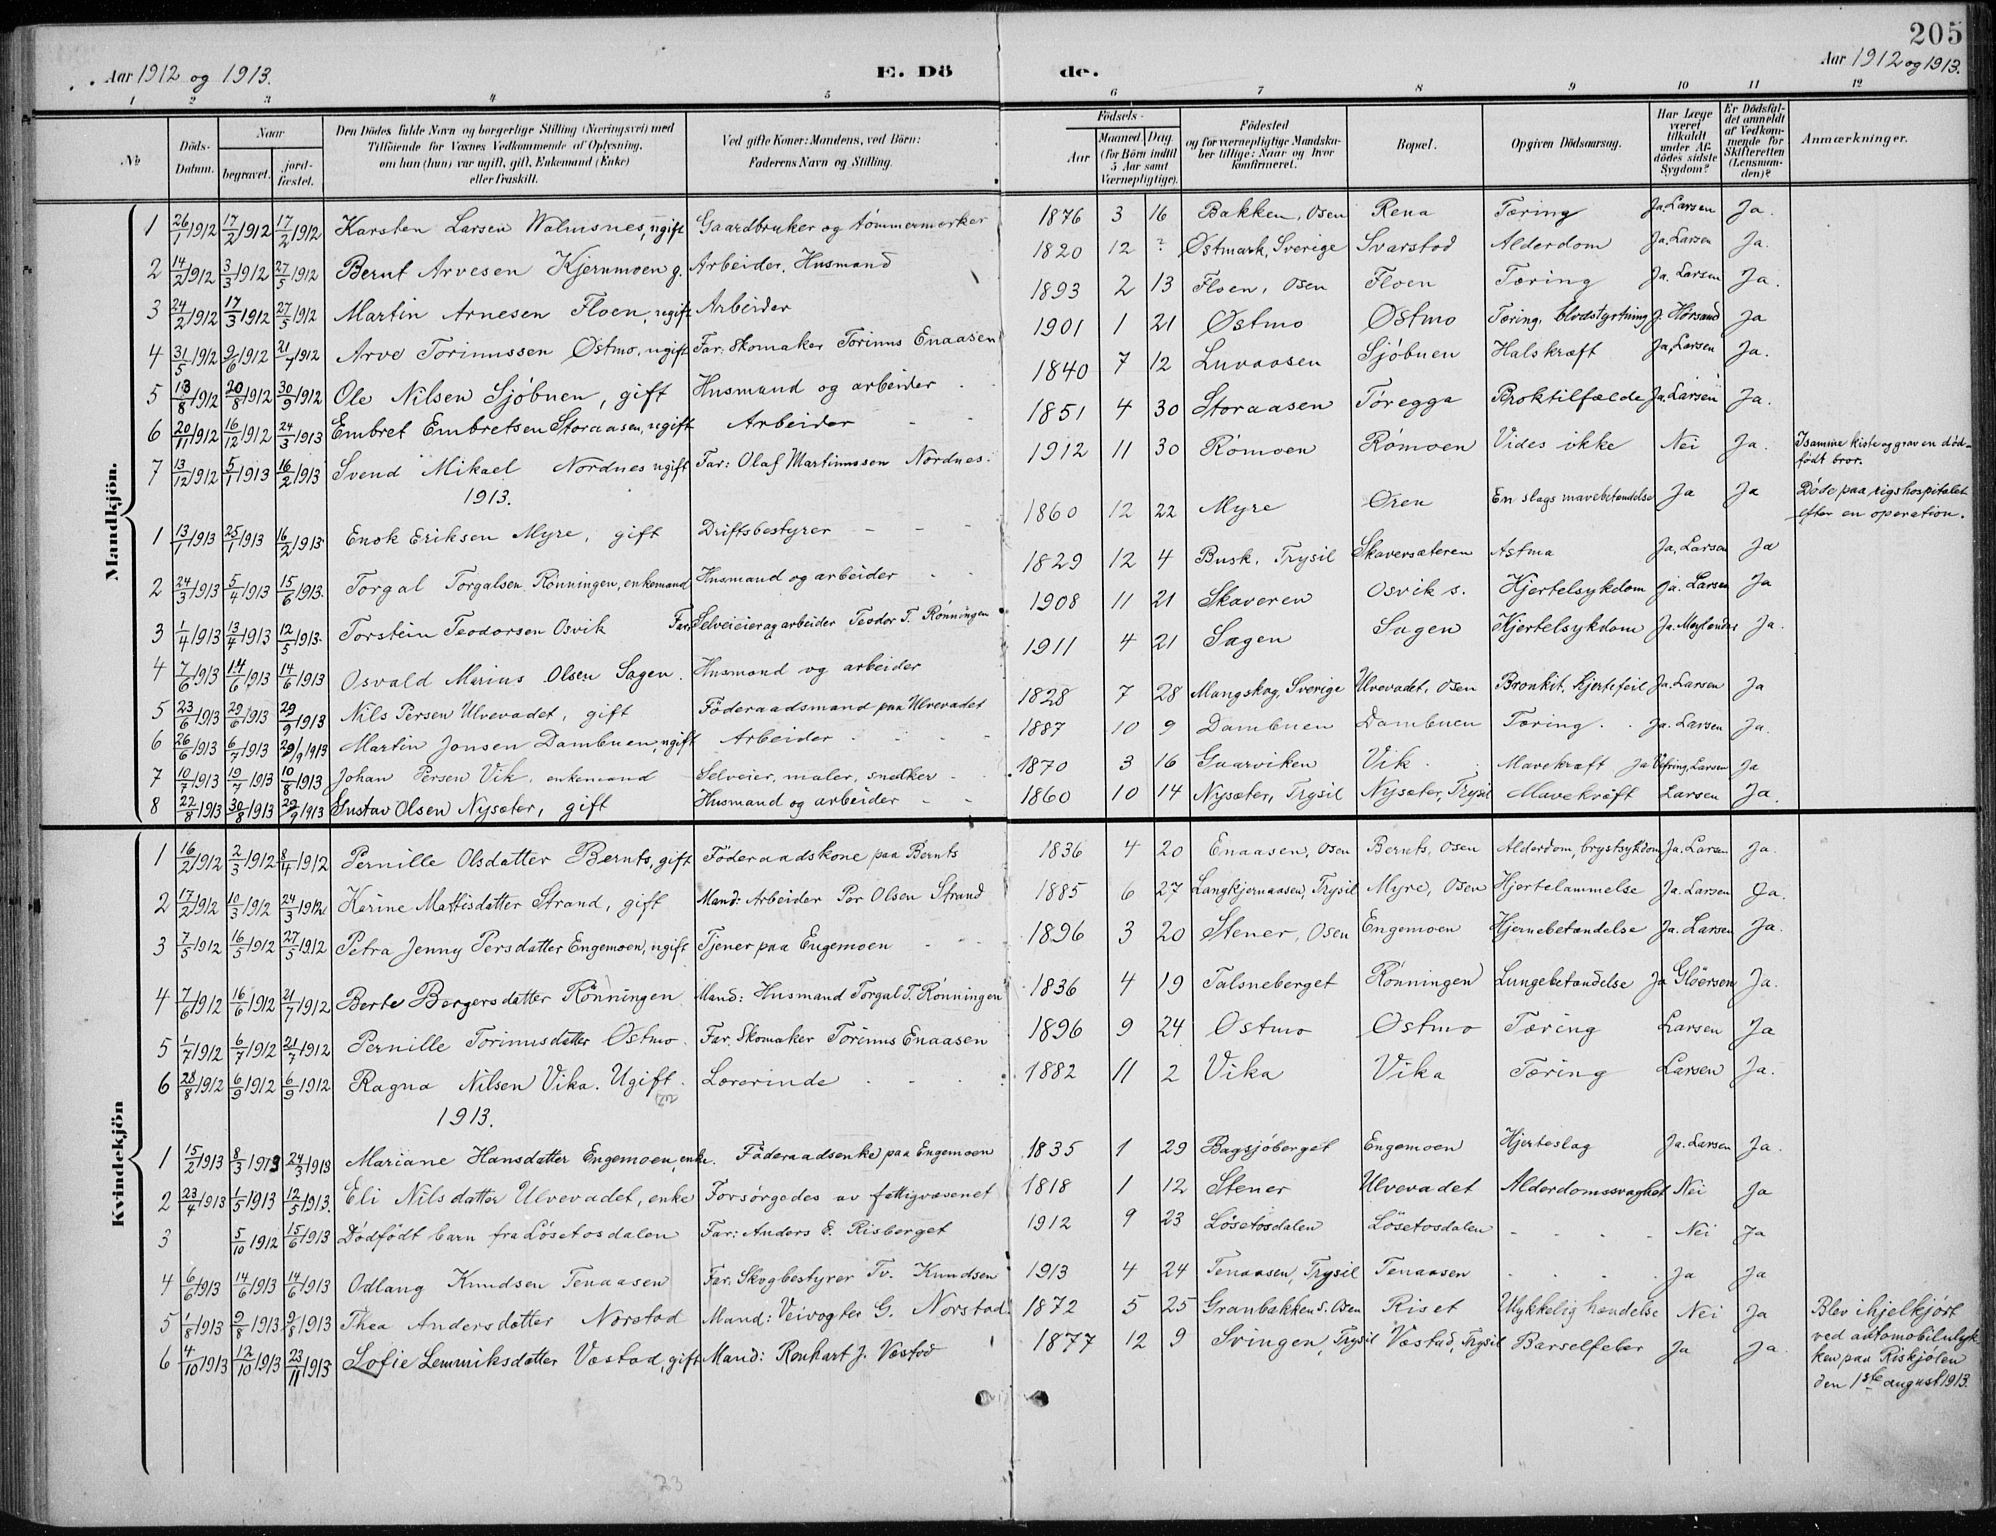 205
Aar 1912 og 1913.
E. Dö
de.
Aar 1912 og 1913.
1 2 3 4 5 6 7 8 9 10 11 12
No
Döds-Datum.
Naar
begravet.
jord-fæstet.
Den Dödes fulde Navn og borgerlige Stilling (Næringsvei) med
Tilföiende for Voxnes Vedkommende af Oplysning,
om han (hun) var ugift, gift, Enkemand (Enke)
eller fraskilt.
Ved gifte Koner: Mandens, ved Börn:
Faderens Navn og Stilling.
Födsels-
Aar
Maaned Dag
(for Börn indtil 5 Aar samt Værnepligtige).
Födested
og for værnepligtige Mandskaber tillige: Naar og hvor konfirmeret.
Bopæl.
Opgiven Dödsaarsag.
Har Læge været tilkaldt under Afdödes sidste Sygdom?
Er Dödsfaldet anmeldt af Vedkommende for Skifteretten (Lensmanden)?
Anmærkninger.
Mandkjön.
1 26/1 1912 17/2 1912 17/2 1912 Karsten Larsen Valmsnes, ugift Gaardbruker og tømmermerker 1876 3 16 Bakken, Osen Rena Tæring Ja. Larsen Ja.
2 14/2 1912 3/3 1912 27/5 1912 Bernt Arvesen Kjernmoen g. Arbeider, Husmand 1820 12 ? Østmark, Sverige Svarstad Alderdom Ja. Larsen Ja.
3 24/2 1912 17/3 1912 27/5 1912 Martin Arnesen Floen, ugift Arbeider 1893 2 13 Floen, Osen Floen Tæring Ja. Larsen Ja.
4 31/5 1912 9/6 1912 21/7 1912 Arve Torinussen Østmo, ugift Far: Skomaker Torinus Enaasen 1901 1 21 Østmo Østmo Tæring, blodstyrtning J. Hørsand Ja
5 18/8 1912 20/8 1912 30/9 1912 Ole Nilsen Sjøbuen, gift Husmand og arbeider 1840 7 12 Luvaasen Sjøbuen Halskræft Ja, Larsen Ja.
6 20/11 1912 16/12 1912 24/3 1913 Embret Embretsen Storaasen, ugift Arbeider 1851 4 30 Storaasen Tøregga Broktilfælde Ja. Larsen Ja.
7 13/12 1912 5/1 1913 16/2 1913 Svend Mikael Nordnes ugift Far: Olaf Martinussen Nordnes. 1912 11 30 Rømoen Rømoen Vides ikke Nei Ja. I samme kiste og grav en død-
født bror.
1913.
1 13/1 1913 25/1 1913 16/2 1913 Enok Eriksen Myre, gift Driftsbestyrer 1860 12 22 Myre Øren En slags mavebetændelse Ja Ja Døde paa rigshospitalet
efter en operation.
2 24/3 1913 5/4 1913 15/6 1913. Torgal Torgalsen Rønningen, enkemand Husmand og arbeider 1829 12 4 Busk, Trysil Skaversæteren Astma Ja, Larsen Ja
3 1/4 1913 13/4 1913 12/5 1913. Torstein Teodorsen Osvik Far: Selveier og arbeider Teodor T. Rønningen 1908 11 21 Skaveren Osvik s. Hjertelsykdom Ja. Larsen Ja
4 7/6 1913 14/6 1913 14/6 1913 Osvald Marius Olsen Sagen. Husmand og arbeider 1911 4 21 Sagen Sagen Hjertelsykdom Ja. Ja.
5 23/6 1913 29/6 1913 29/9 1913 Nils Persen Ulvevadet, gift Føderaadsmand paa Ulvevadet 1828 7 28 Mangskog, Sverige Ulvevadet, Osen Bronkit, hjertefeil Ja. Larsen Ja
6 26/6 1913 6/7 1913 29/9 1913 Martin Jonsen Dambuen, ugift Arbeider 1887 10 9 Dambuen Dambuen Tæring. Ja. Larsen Ja.
7 10/7 1913 19/7 1913 10/8 1913 Johan Persen Vik, enkemand Selveier, maler, snedker 1870 3 16 Gaarviken Vik Mavekræft Ja Larsen Ja
8 22/8 1913 30/8 1913 29/9 1913 Gustav Olsen Nysæter, gift Husmand og arbeider 1860 10 14 Nysæter, Trysil Nysæter, Trysil Mavekræft Larsen Ja.
Kvindekjön
1 16/2 1912 2/3 1912 8/4 1912 Pernille Olsdatter Bernts, gift Føderaadskone paa Bernts 1836 4 20 Enaasen, Osen Bernts, Osen Alderdom, brystsykdom Ja. Larsen Ja.
2 17/2 1912 10/3 1912 24/3 1912 Karine Mattisdatter Strand, gift Mand: Arbeider Per Olsen Strand 1885 6 27 Langkjernaasen, Trysil Myre, Osen Hjertelammelse Ja. Larsen Ja.
3 7/5 1912 16/5 1912 27/5 1912 Petra Jenny Persdatter Engemoen, ugift Tjener paa Engemoen 1896 3 20 Stener, Osen Engemoen Hjernebetændelse Ja. Larsen Ja.
4 7/6 1912 16/6 1912 21/7 1912 Berte Bergersdatter Rønningen Mand: Husmand Torgal T. Rønningen 1836 4 19 Talsneberget Rønningen Lungebetændelse Ja Gløersen Ja.
5 1/7 1912 6/7 1912 21/7 1912 Pernille Torinusdatter Østmo. Far. Skomaker Torinus Enaasen 1896 9 24 Ostmo Ostmo Tæring Larsen Ja
6 28/8 1912 6/9 1912 6/9 1912 Ragna Nilsen Vika. Ugift. Lærerinde 1882 11 2 Vika Vika Tæring Larsen Ja.
1913.
1 15/2 1913 8/3 1913 24/3 1913 Mariane Hansdatter Engemoen, enke. Føderaadsenke paa Engemoen 1835 1 29 Bagsjøberget Engemoen Hjerteslag Ja. Larsen Ja.
2 23/4 1913 1/5 1913 12/5 1913. Eli Nilsdatter Ulvevadet, enke Forsørgedes av fattigvæsenet 1818 1 12 Stener Ulvevadet Alderdomssvaghet Nei Ja
3 5/10 1912 15/6 1913 Dødfødt barn fra Løsetosdalen Far: Anders E. Risberget 1912 9 23 Løsetosdalen Løsetosdalen Nei Ja
4 6/6 1913 14/6 1913 14/6 1913 Odlaug Knudsen Tenaasen Far. Skogbestyrer Tv. Knudsen 1913 4 24 Tenaasen, Trysil Tenaasen Ja Ja
5 1/8 1913 9/8 1913 9/8 1913 Thea Andersdatter Norstad Mand: Veivogter G. Norstad. 1872 5 25 Granbakken s. Osen Riset Ulykkelig hændelse Nei Ja Blev ihjelkjørt
ved automobilulyk-
ken paa Riskjølen
den 1ste august 1913.
6 4/10 1913 12/10 1913 23/11 1913 Sofie Lemmiksdatter Væstad, gift Mand: Renhart J. Væstad 1877 12 9 Svingen, Trysil Væstad, Trysil Barselfeber Ja Ja.
23